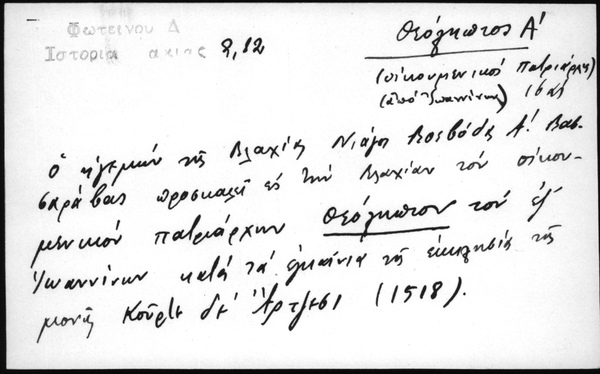 Φωτεινού Δ
Ιστορία ακίας 2,12
Θεόληπτος Α'
(οἰκουμενικός πατριάρχης)
(ἀπό Ἰωαννίνων)
Ὁ ἡγεμών τῆς Βλαχίας Νιάγο Βοεβόδα Α'. Βασ-
σαράβας προσκαλεῖ εἰς τήν Βλαχίαν τόν οἰκου-
μενικόν πατριάρχην Θεόληπτον τόν ἐξ
Ἰωαννίνων κατά τά ἐγκαίνια τῆς ἐκκλησίας τῆς
μονῆς Κοῦρτε δ' Ἄρτζεσι (1518).